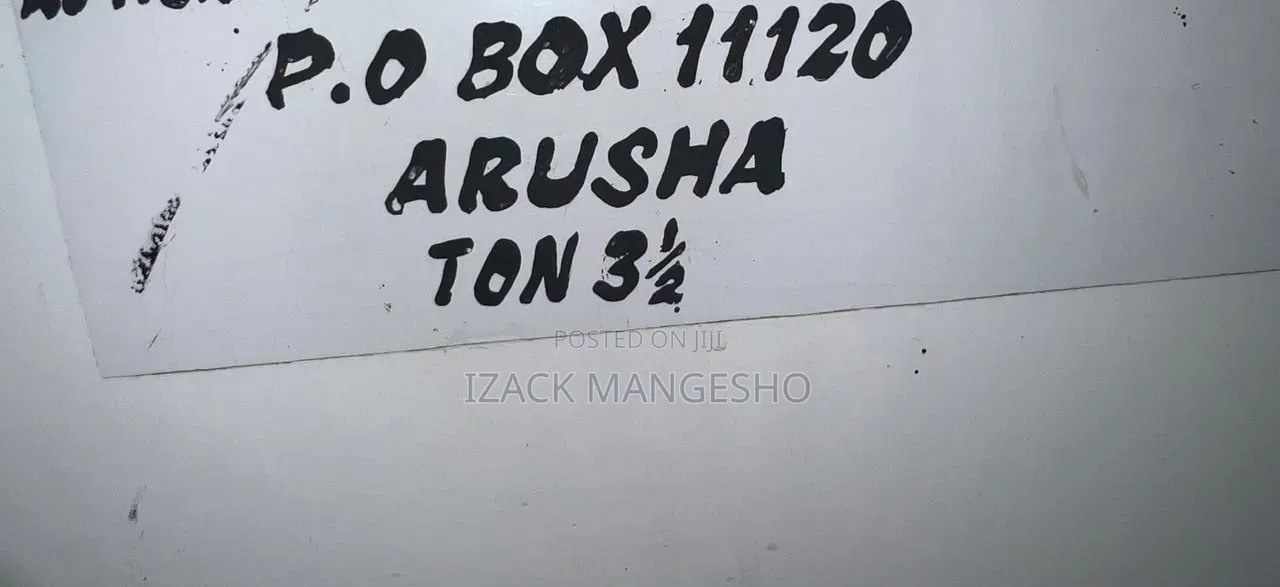 P.O BOX 11120
ARUSHA
TON 3½
POSTED ON JIJI
IZACK MANGESHO